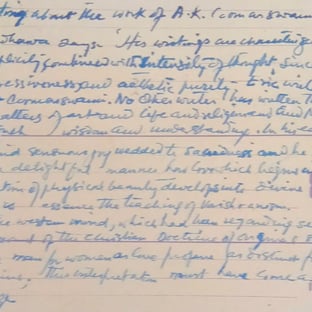 ting about the work of A.K. Coomaraswam
says. 'His writings are characterize
plicity combined with intensity of thought since
ressiveness and aesthetic purity
Coomaraswami. No other writer has written t
atters of art and life and religion and
wisdom and understanding. In his
sensuous joy wedded to sacredness and he
delightful manner how love which begins
tion of physical beauty develops into divine
essence the teaching of Vaishnavism.
western mind, which had been regarding se
of the Christian Doctrine of original s
man for woman as love profane as distinct f
this interpretation must have come a